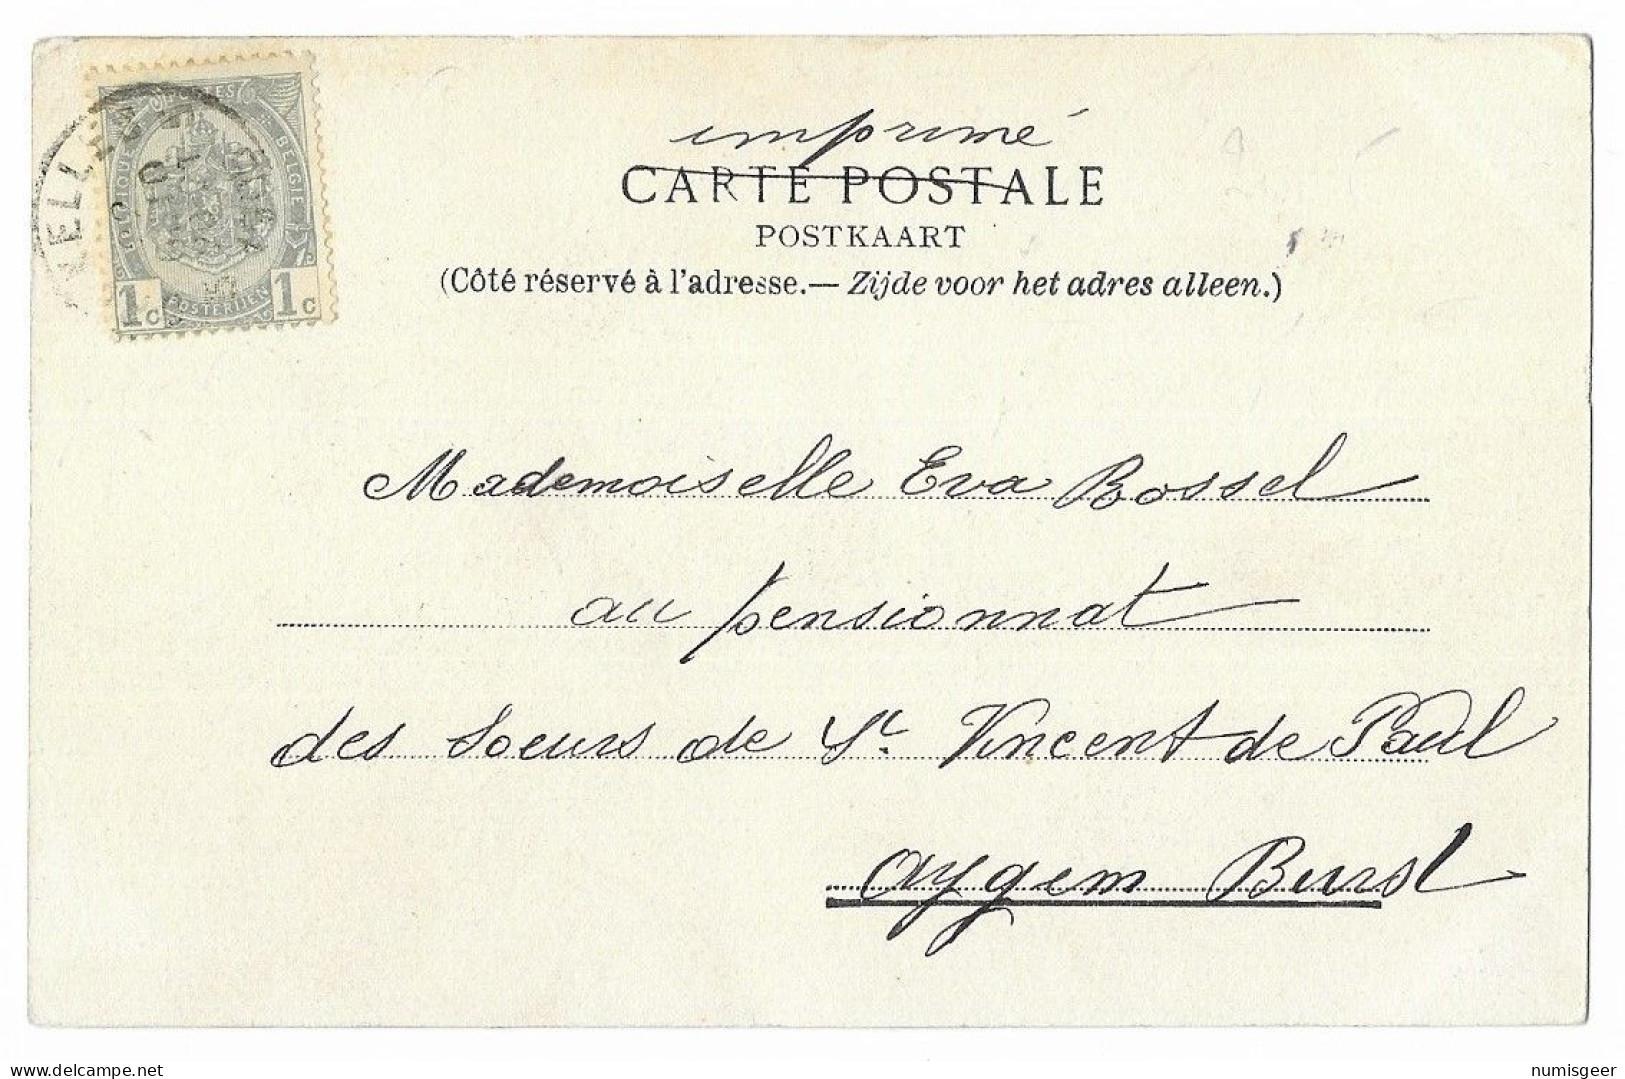 imprimé
CARTE POSTALE
POSTKAART
(Côté réservé à l'adresse.— Zijde voor het adres alleen.)
POSTES
BELGIQUE BELGIE
1c POSTERIJEN 1c
Mademoiselle Eva Bossel
au pensionnat
des Soeurs de St. Vincent de Paul
Aygem Burst
numisgeer